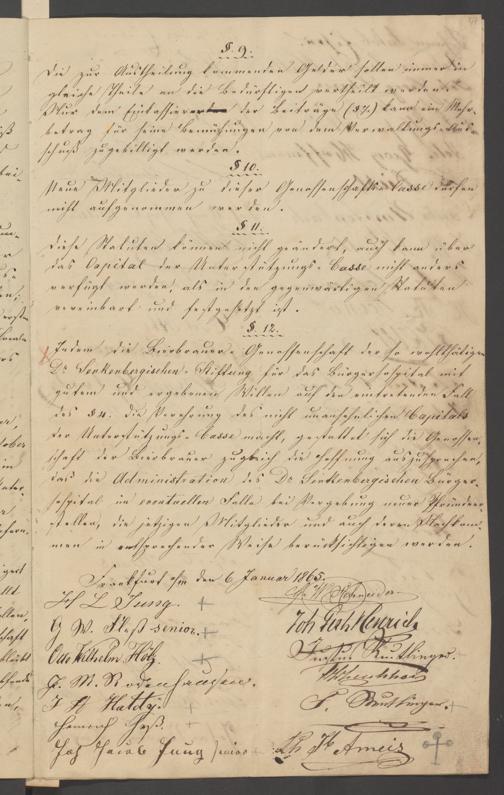 §. 9.
Die zur Austheilung kommenden Gelder sollen immer in
gleiche Theile an die Bedürftigen vertheilt werden.
Nur dem Einkassierer der Beiträge (§ 7.) kann ein Mehr-
betrag für seine Bemühungen von dem Verwaltungs-Aus-
schuß zugebilligt werden.
§ 10.
Neue Mitglieder zu dieser Genossenschafts-Casse dürfen
nicht aufgenommen werden.
§ 11.
Diese Statuten können nicht geändert, auch kann über
das Capital der Unterstützungs-Casse nicht anders
verfügt werden, als in den gegenwärtigen Statuten
vereinbart und festgesetzt ist.
§. 12.
Indem die Bierbrauer-Genossenschaft der so wohlthätigen
Dr Senkenbergischen-Stiftung für das Bürgerhospital mit
gutem und ergebenen Willen auf den eintretenden Fall
des § 4. die Verehrung des nicht unansehnlichen Capitals
der Unterstützungs-Casse macht, gestattet sich die Genossen-
schaft der Bierbrauer zugleich die Hoffnung auszusprechen,
daß die Administration des Dr Senkenbergischen Bürger-
hospital in eventuellen Falle bei Vergebung neuer Pfründner
stellen, die jetzigen Mitglieder und auch deren Nachkom-
men in entsprechender Weise berücksichtigen werden.
Frankfurt a/m den 6 Januar 1865.
Joh L Jung.
G W. senior.
Joh Gerh Henrich
Otto Wilhelm
J. M. Rodenhausen.
J. Hatdy.
Heinrich
Joh Jacob Jung senior
Ameis